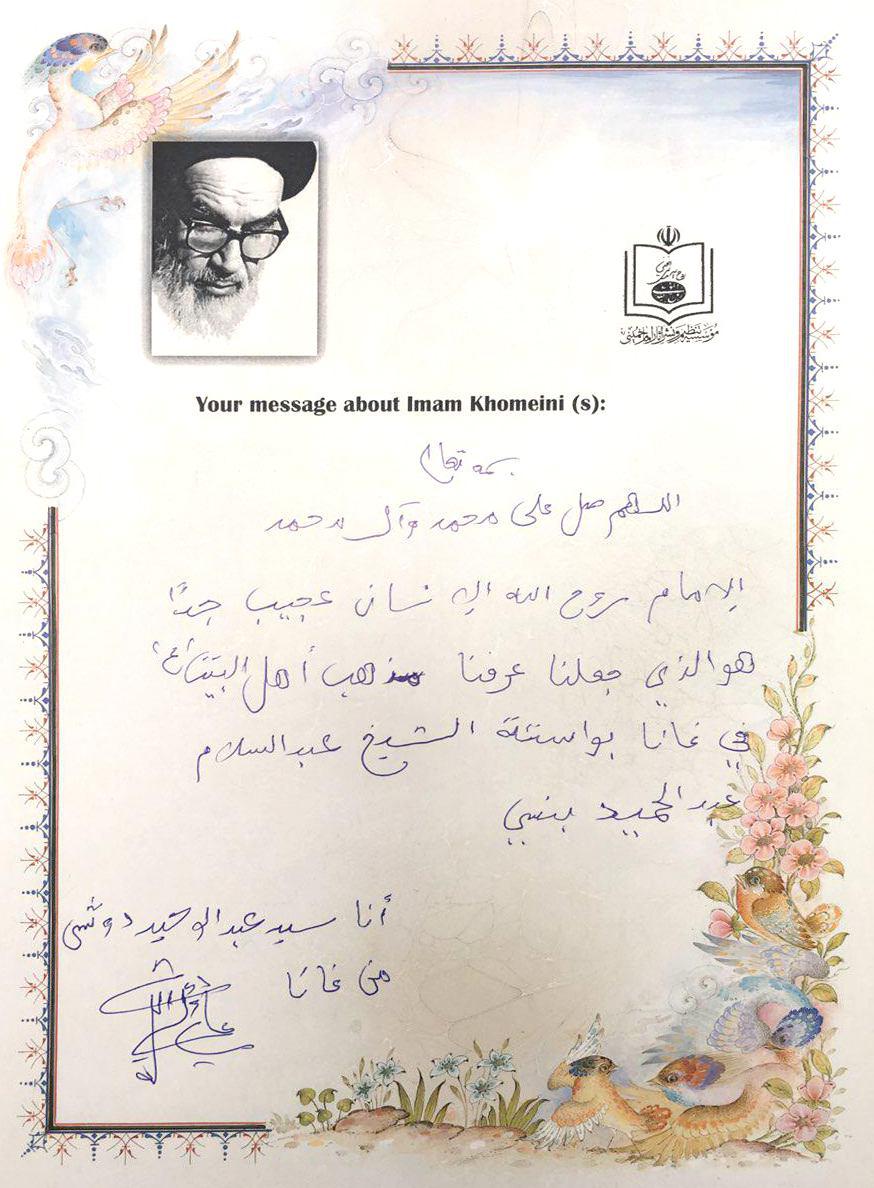 مؤسسه تنظیم و نشر آثار امام خمینی
Your message about Imam Khomeini (s):
بسمه تعالى
اللهم صل على محمد وآل محمد
الامام روح الله الإنسان عجيب جدًا
هو الذي جعلنا عرفنا مذهب أهل البيت (ع)
في غانا بواستة الشيخ عبد السلام
عبد الحميد بنسي
أنا سيد عبد الوحيد دوشي
من غانا